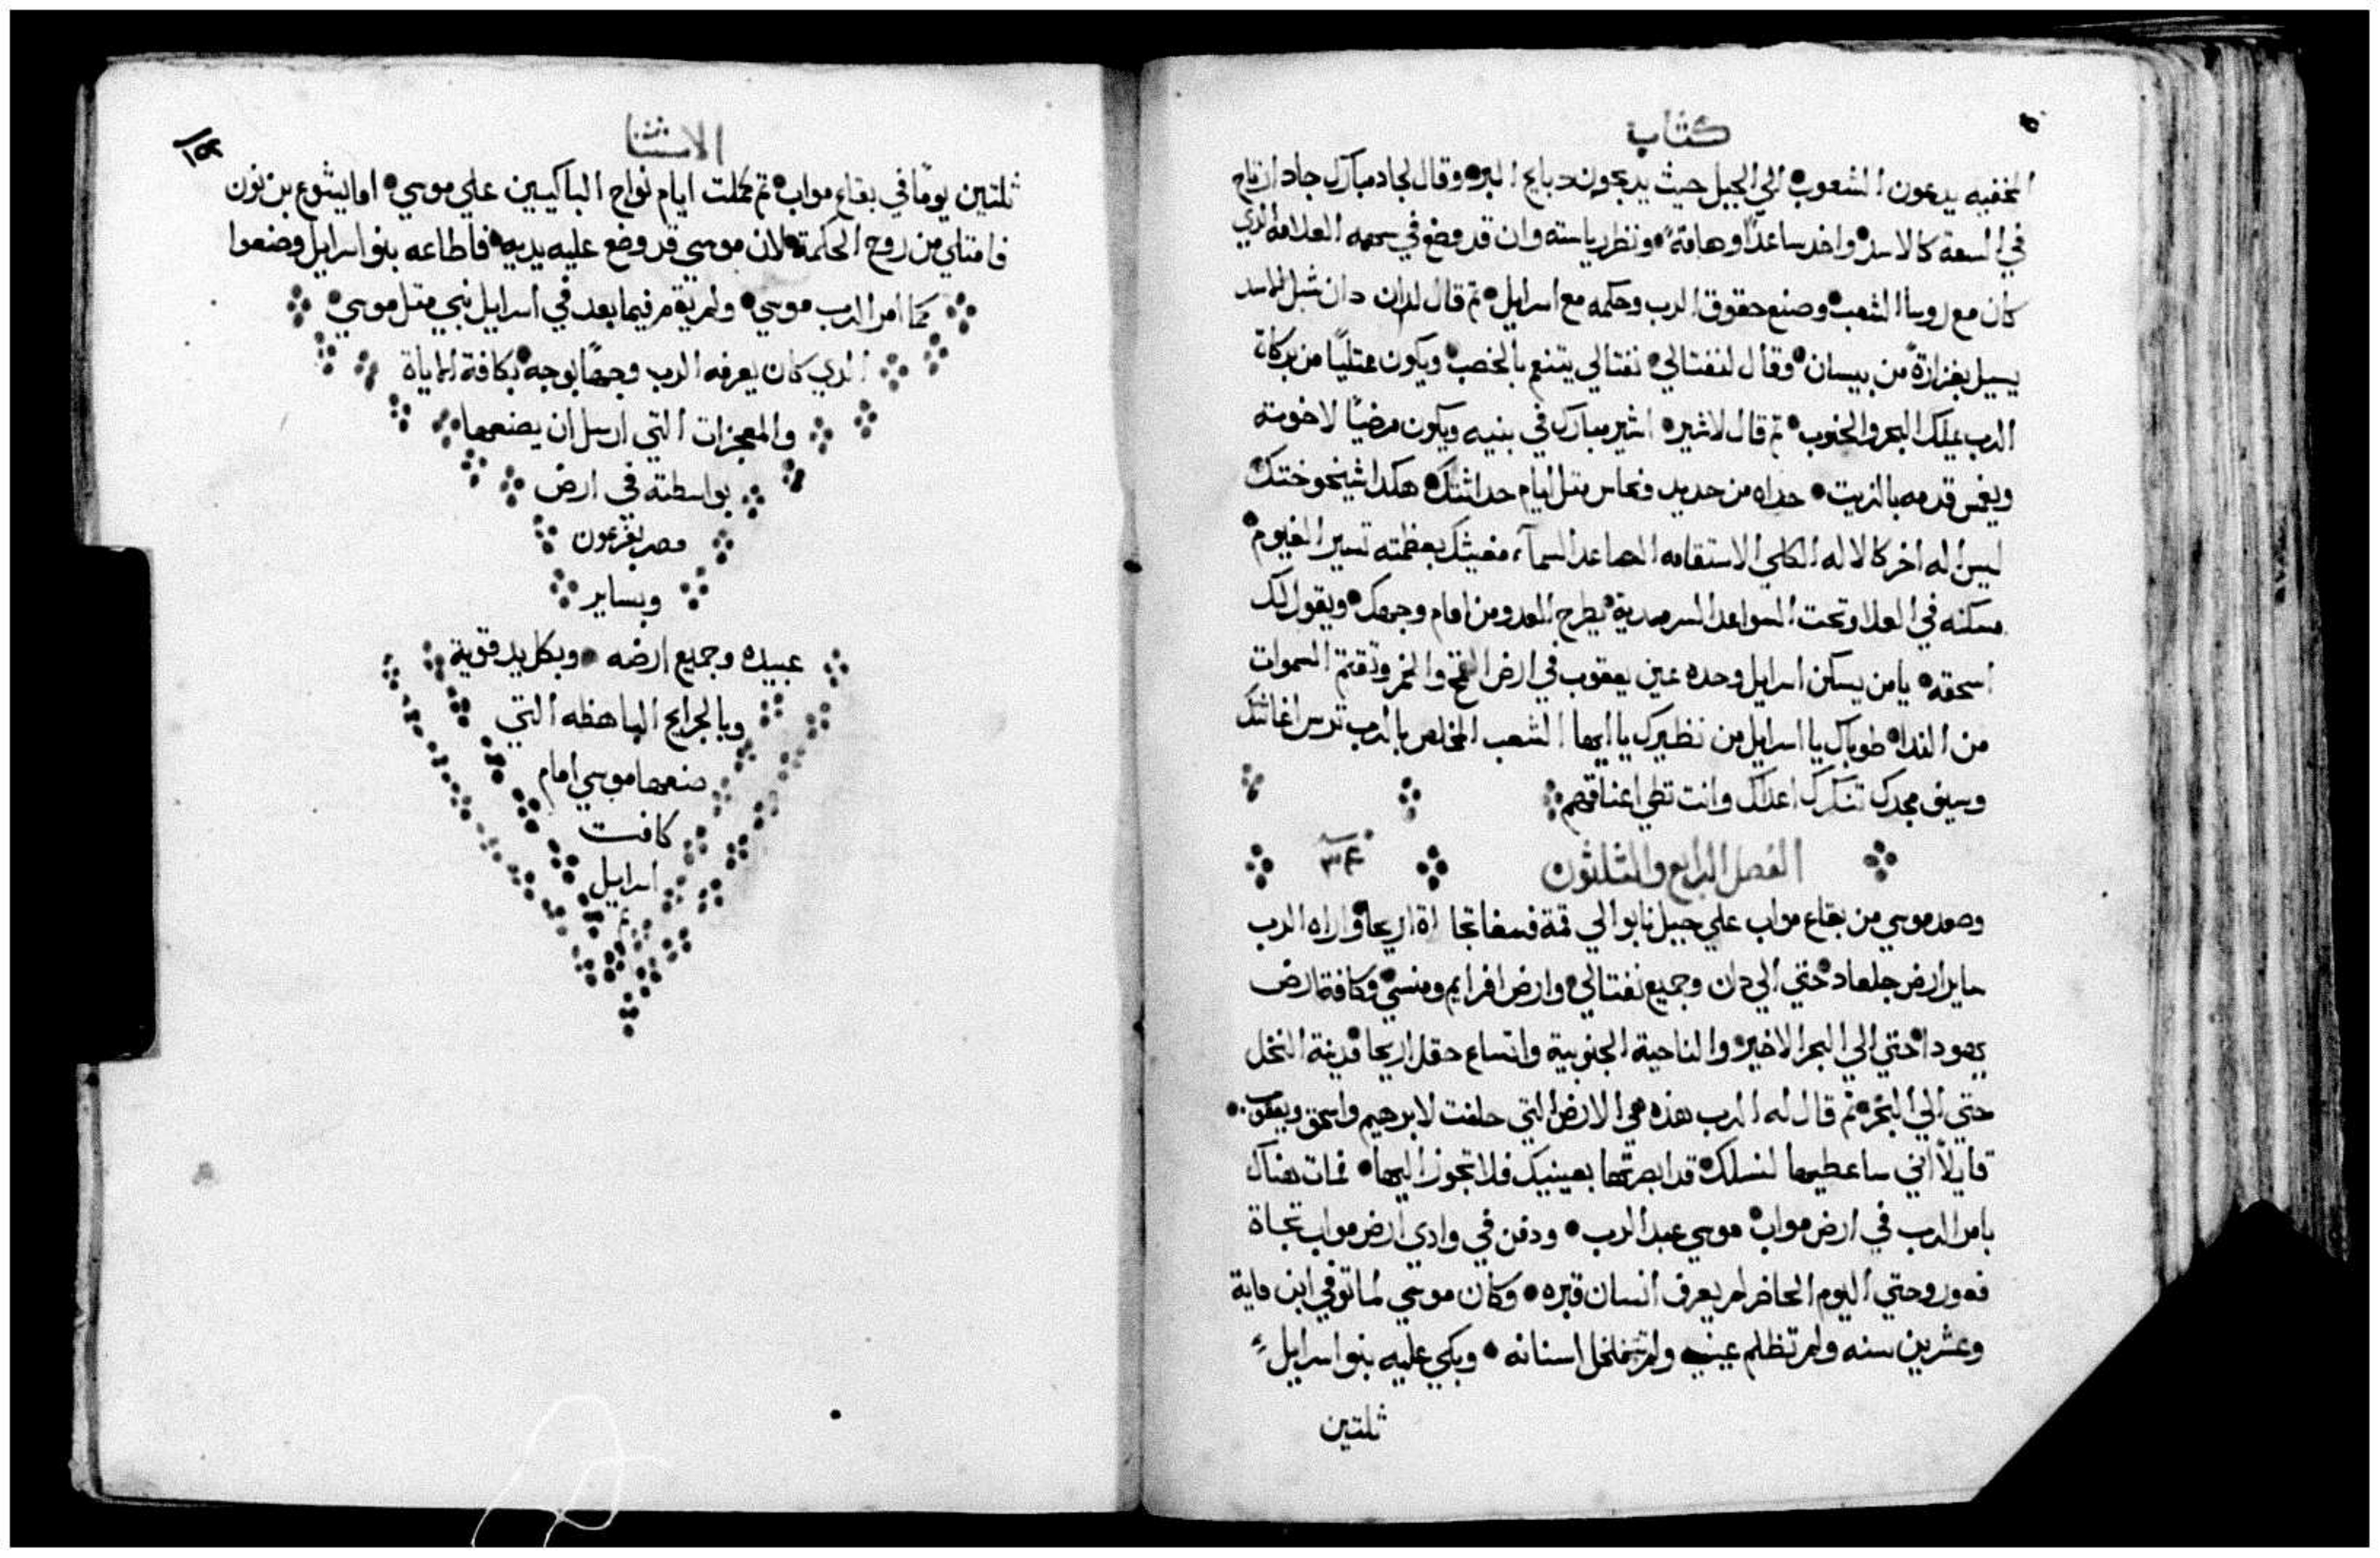 كتاب
المخفيه يدعون الشعوب الي الجبل حيث يدبحون دبايح البر وقال لجاد مبارك جاد ارتاح
في السعة كالاسد واخد ساعدًا وهامة ونظر رياسته وان قد وضع في سهمه العلامه الدي
كان مع روسا الشعب وصنع حقوق الرب وحكمه مع اسرايل تم قال لدان دان شبل الاسد
يسيل بغزارة من بيسان وقال لنفتالي نفتالي يتنعم بالخصب ويكون ممتليًا من بركاة
الرب يملك البحر والجنوب تم قال لاشير اشير مبارك في بنيه ويكون مرضيًا لاخوته
ويغمس قدمه بالزيت حداه من حديد ونحاس متل ايام حداثتك هكدا شيخوختك
ليس اله اخر كالاله الكلي الاستقامه الصاعد السمآء مغيثك بعظمته تسير الغيوم
مسكنه في العلا وتحت السواعد السرمدية يطرح العدو من امام وجهك ويقول لك
اسحقه يا من يسكن اسرايل وحده عين يعقوب في ارض القمح والخمر وتقتم السموات
من الندا طوباك يا اسرايل من نظيرك يا ايها الشعب المخلص بالرب ترس اغاثتك
وسيف مجدك تنكرك اعداك وانت تطي اعناقهم
الفصل الرابع والثلثون ٣٤
وصعد موسي من بقاع مواب علي جبل نابو الي قمة فسغا تجاة اريحا واراه الرب
ساير ارض جلعاد حتي الي دان وجميع نفتالي وارض افرايم ومنسي وكافة ارض
يهودا حتي الي البحر الاخير والناحية الجنوبية واتساع حقل اريحا مدينة النخل
حتي الي البحر تم قال له الرب هذه هي الارض التي حلفت لابرهيم واسحق ويعقوب
قايلاً اني ساعطيها لنسلك قد ابصرتها بعينيك فلا تجوز اليها فمات هناك
بامر الرب في ارض مواب موسي عبد الرب ودفن في وادي ارض مواب تجاة
فعور وحتي اليوم الحاضر لم يعرف انسان قبره وكان موسي لما توفي ابن ماية
وعشرين سنه ولم تظلم عينه ولم تتخلخل اسنانه وبكي عليه بنو اسرايل
ثلتين
الاستثنا
ثلتين يومًا في بقاع مواب تم كملت ايام نواح الباكيين علي موسي اما يشوع بن نون
فامتلي من روح الحكمة لان موسي قد وضع عليه يديه فاطاعه بنو اسرايل وصنعوا
كما امر الرب موسي ولم يقم فيما بعد في اسرايل نبي متل موسي
الدي كان يعرفه الرب وجهًا بوجه بكافة الاياة
والمعجزات التي ارسل ان يصنعها
بواسطته في ارض
مصر بفرعون
وبساير
عبيده وجميع ارضه وبكل يد قوية
وبالجرايح الباهظه التي
صنعها موسي امام
كافت
اسرايل